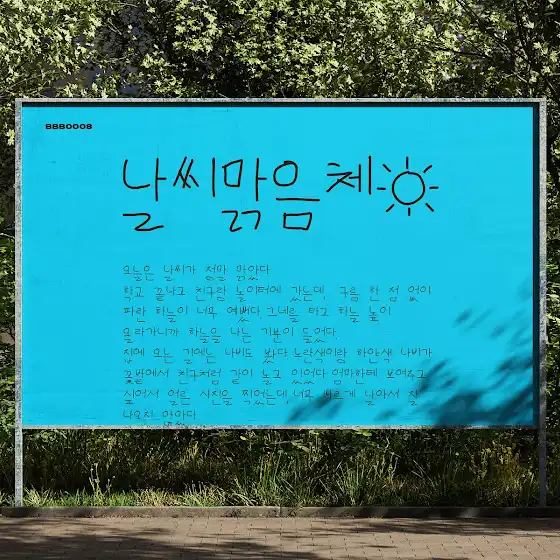 BBB0008
날씨맑음체
오늘은 날씨가 정말 맑았다
학교 끝나고 친구랑 놀이터에 갔는데, 구름 한 점 없이
파란 하늘이 너무 예뻤다. 그네를 타고 하늘 높이
올라가니까 하늘을 나는 기분이 들었다.
집에 오는 길에는 나비도 봤다 노란색이랑 하얀색 나비가
꽃밭에서 친구처럼 같이 놀고 있었다 엄마한테 보여주고
싶어서 얼른 사진을 찍었는데 너무 빠르게 날아서 잘
나오진 않았다